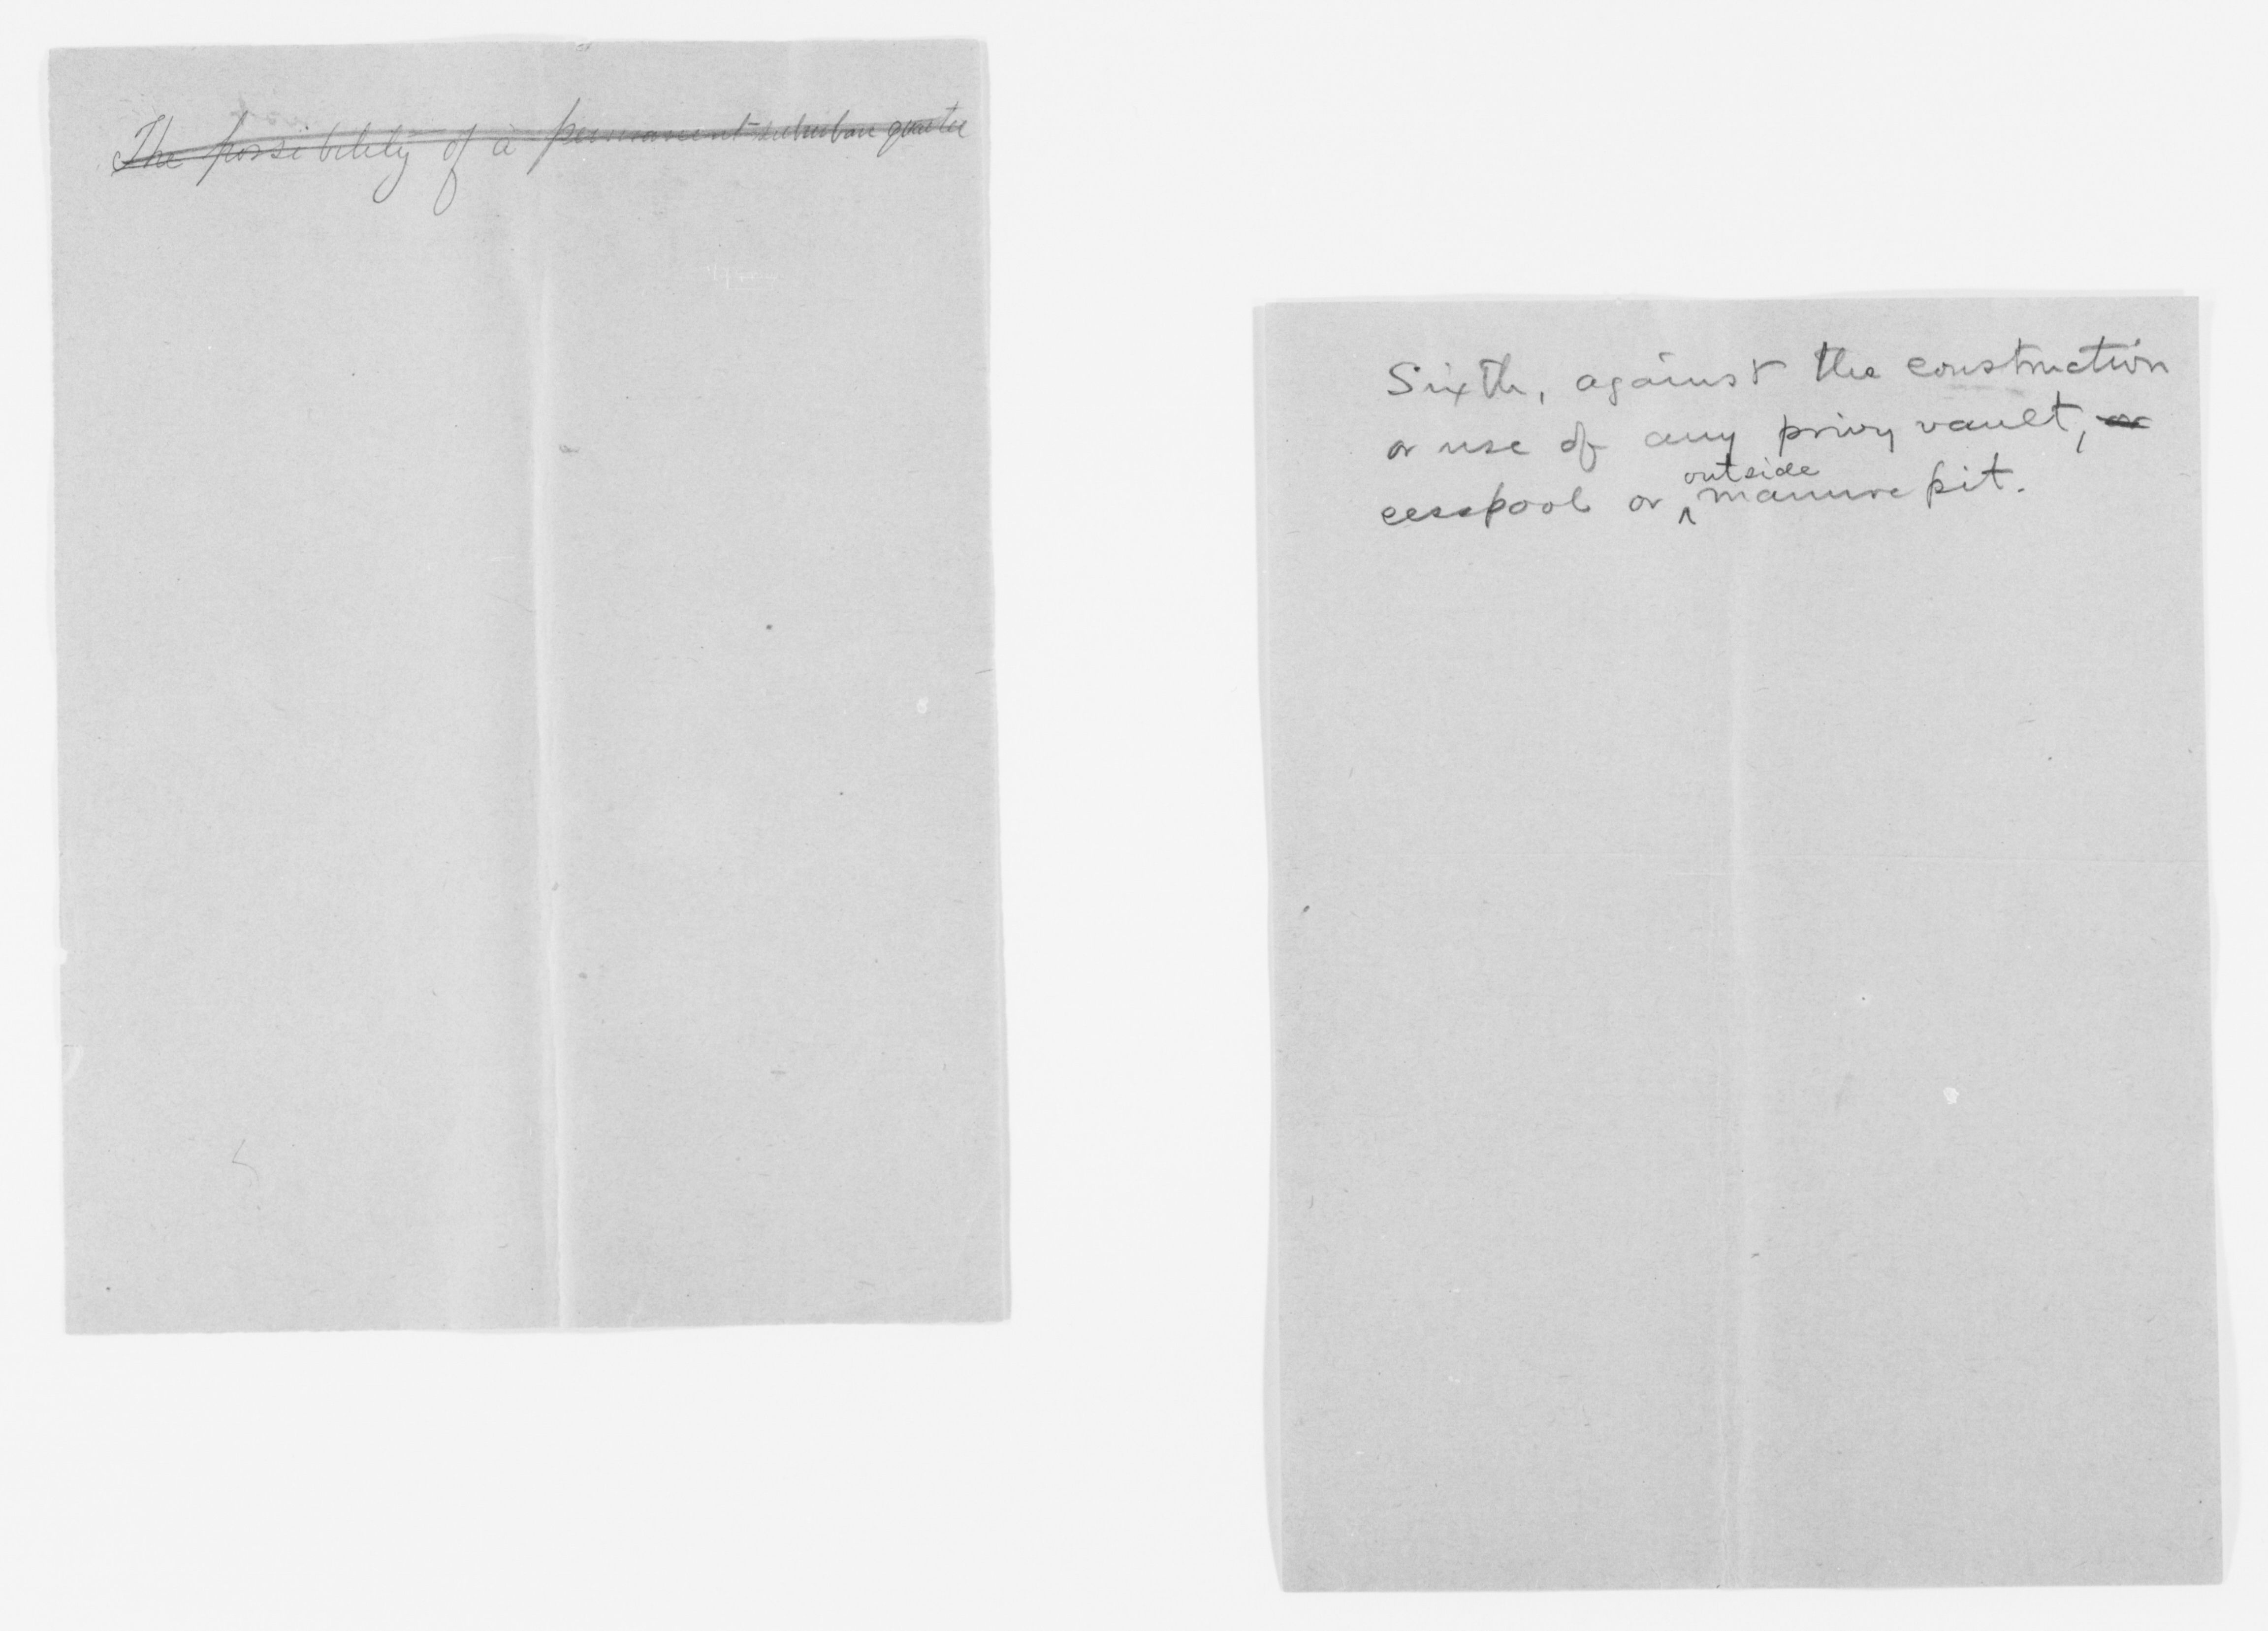 The possibility of a permanent suburban quarter
Sixth, against the construction
or use of any privy vault, or
outside
cesspool or ^ manure pit.